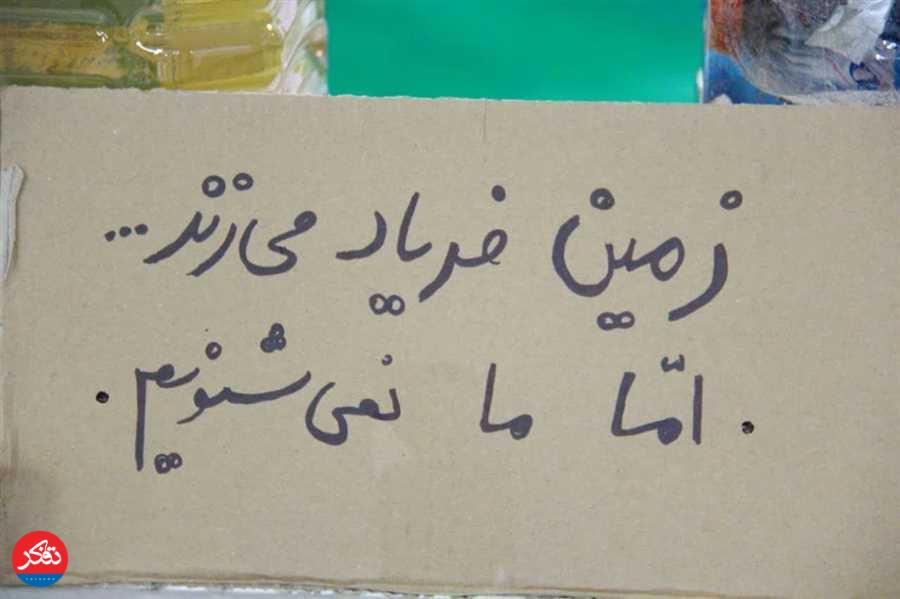 زمین فریاد می‌زند...
امّا ما نمی‌شنویم.
تفکر